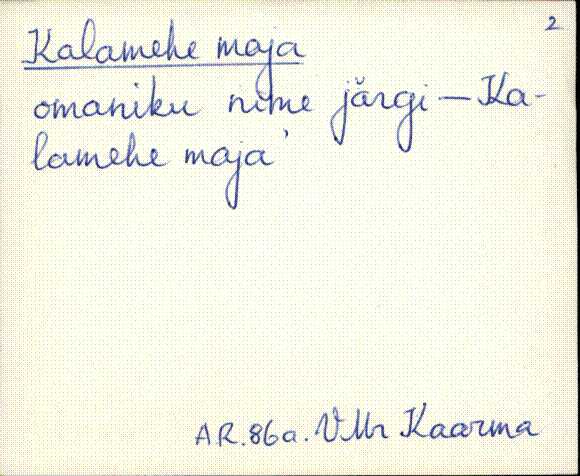 2
Kalamehe maja
omaniku nime järgi — Ka-
lamehe maja'
AR. 86a. VMr Kaarma